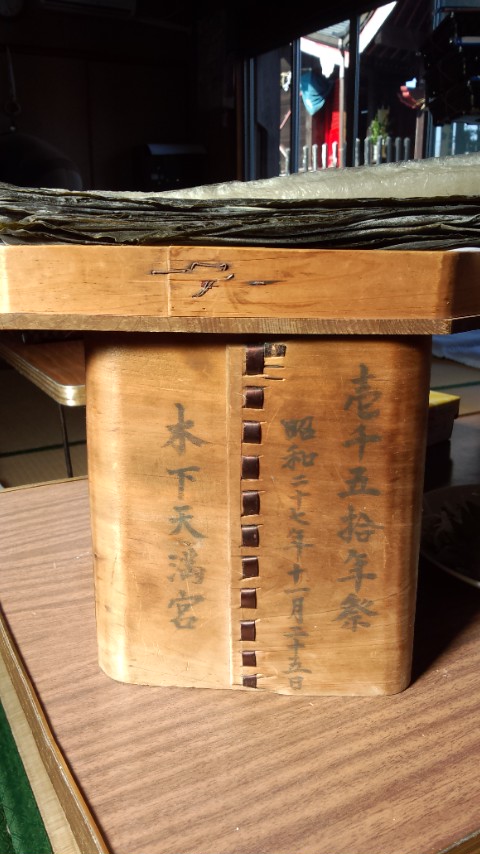 壱千五拾年祭
昭和二十七年十一月二十五日
木下天満宮